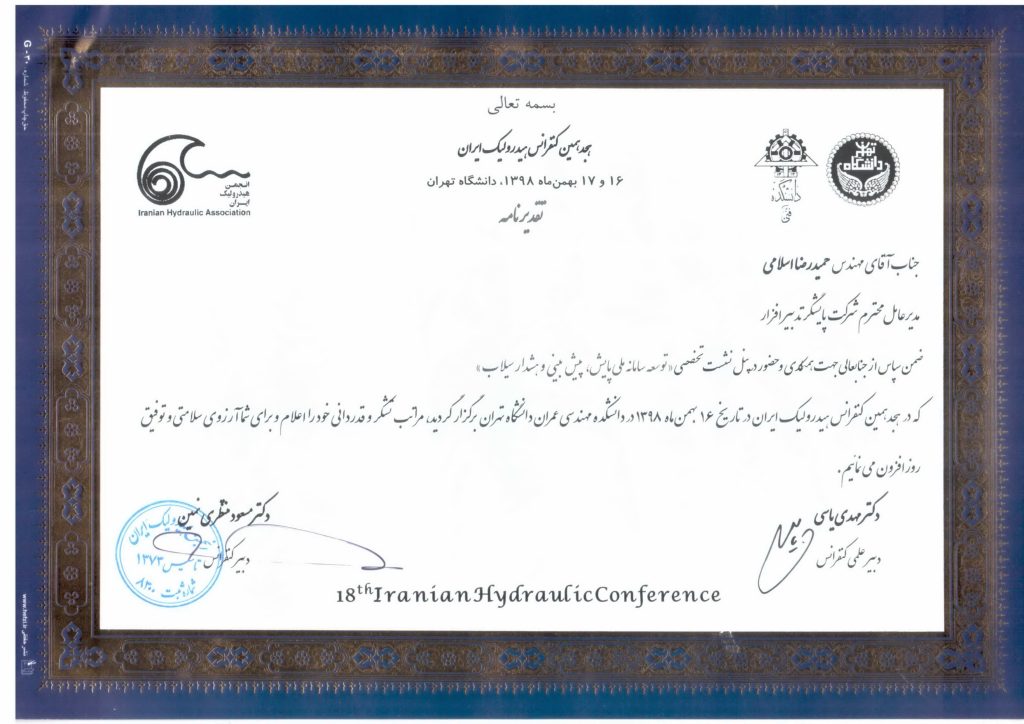 بسمه تعالی
هجدهمین کنفرانس هیدرولیک ایران
۱۶ و ۱۷ بهمن‌ماه ۱۳۹۸، دانشگاه تهران
تقدیرنامه
انجمن
هیدرولیک
ایران
Iranian Hydraulic Association
دانشکده
فنی
دانشگاه
تهران
جناب آقای مهندس حمیدرضا اسلامی
مدیرعامل محترم شرکت پایشگر تدبیر افزار
ضمن سپاس از جنابعالی جهت همکاری و حضور در پنل نشست تخصصی «توسعه سامانه ملی پایش، پیش بینی و هشدار سیلاب»
که در هجدهمین کنفرانس هیدرولیک ایران در تاریخ ۱۶ بهمن‌ماه ۱۳۹۸ در دانشکده مهندسی عمران دانشگاه تهران برگزار گردید، مراتب تشکر و قدردانی خود را اعلام و برای شما آرزوی سلامتی و توفیق
روز افزون می نمائیم.
دکتر مهدی یاسی
دبیر علمی کنفرانس
دکتر مسعود منتظری نمین
دبیر کنفرانس
۱۳۷۳
شماره ثبت ۸۳۰۰
18th Iranian Hydraulic Conference